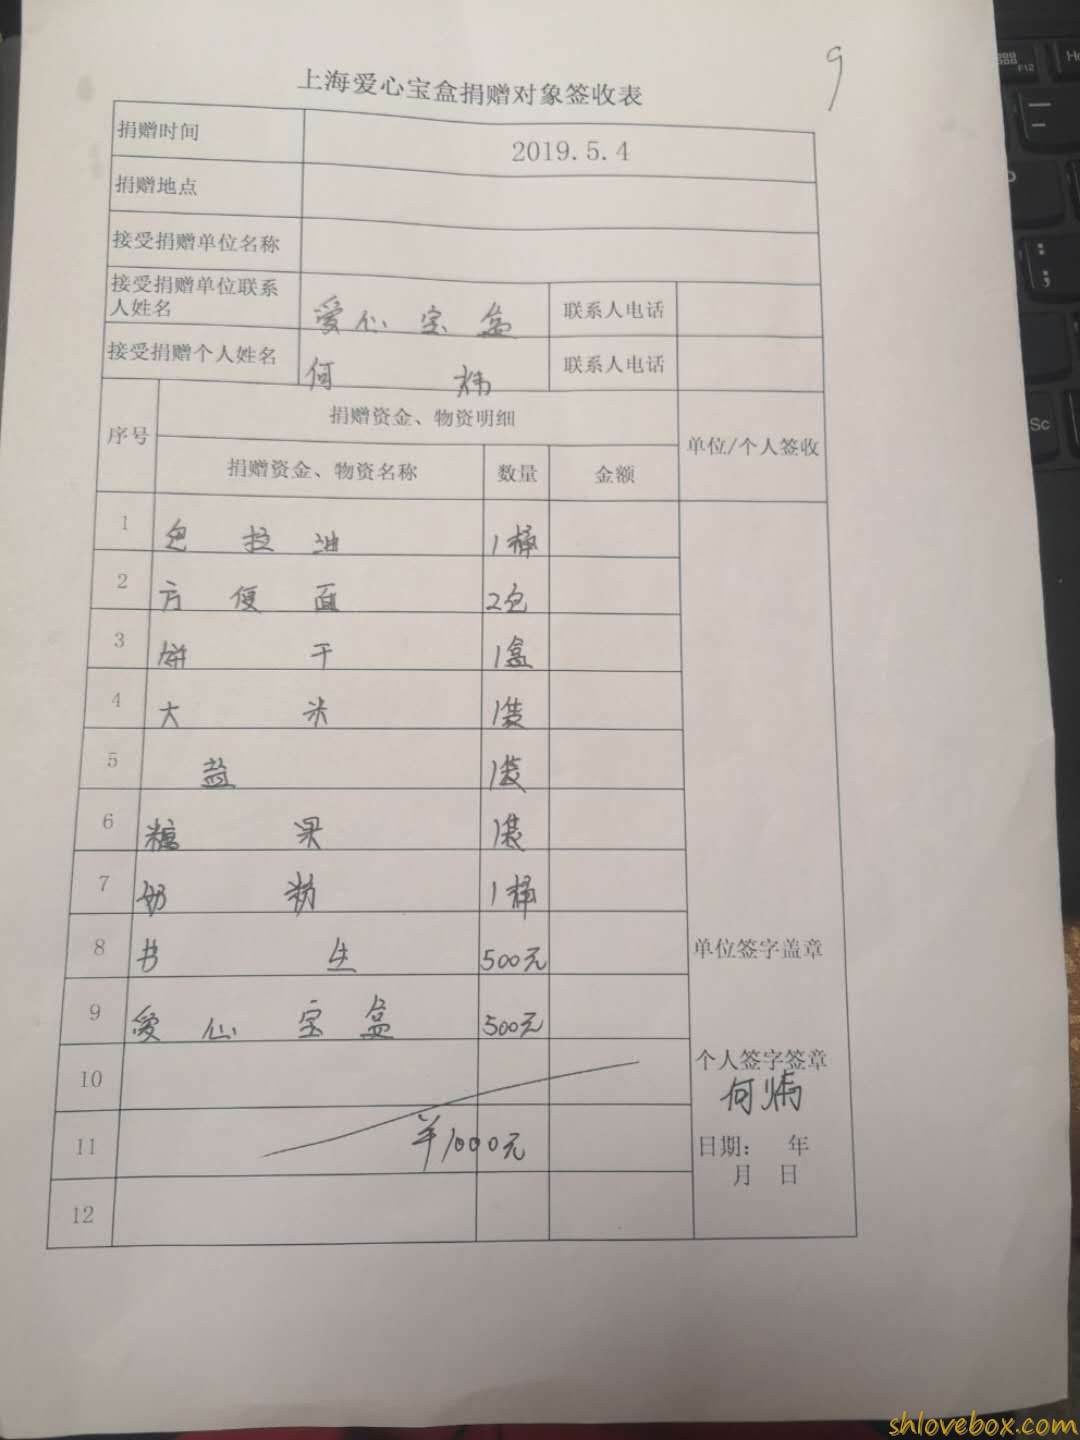 9
上海爱心宝盒捐赠对象签收表
捐赠时间 2019.5.4
捐赠地点
接受捐赠单位名称
接受捐赠单位联系人姓名 爱心宝盒 联系人电话
接受捐赠个人姓名 何 联系人电话
序号 捐赠资金、物资明细 单位/个人签收
捐赠资金、物资名称 数量 金额
1 色拉油 1桶
2 方便面 2包
3 饼干 1盒
4 大米 1袋
5 盐 1袋
6 糖果 1袋
7 奶粉 1桶
8 书生 500元
9 爱心宝盒 500元
10
11 ¥1000元
12
单位签字盖章
个人签字签章
何
日期： 年
月 日
shlovebox.com